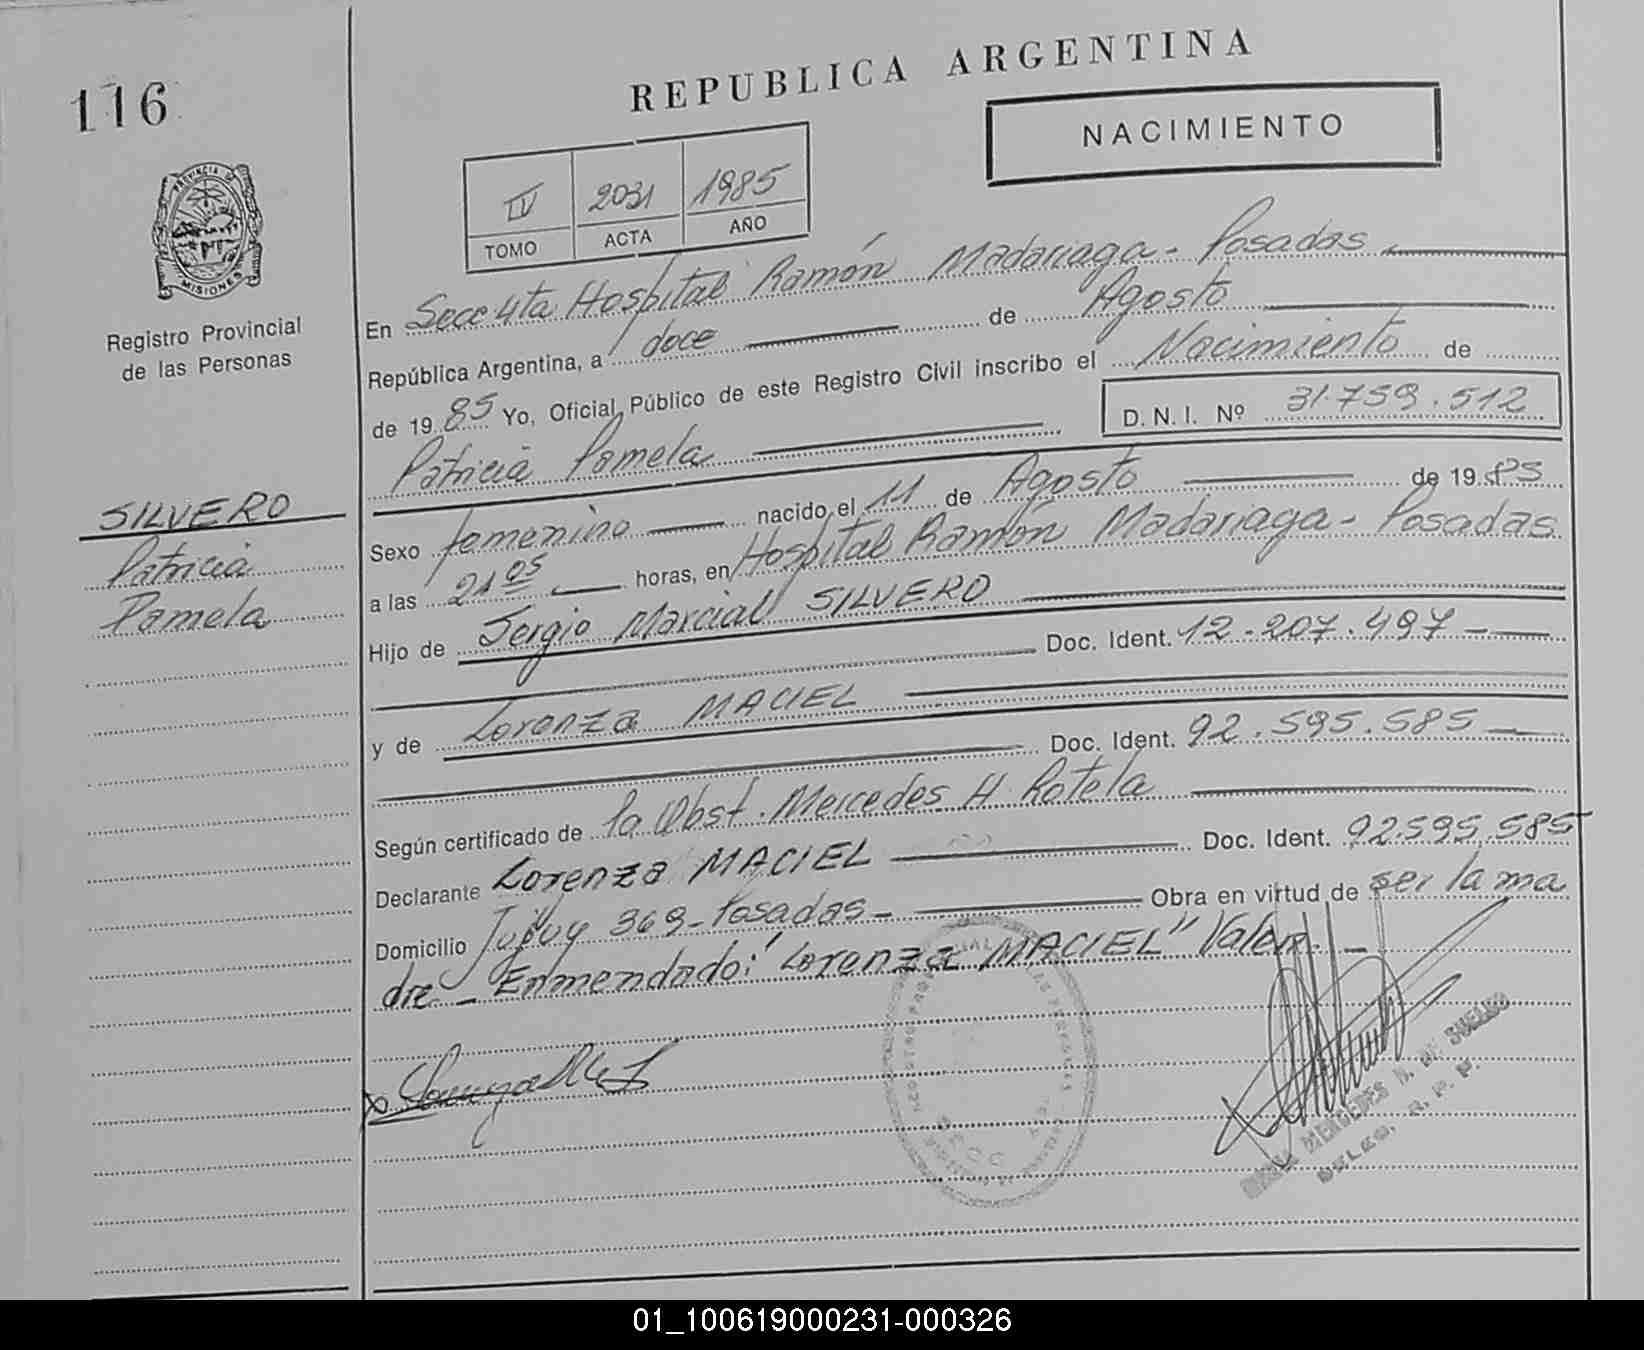 116
REPUBLICA ARGENTINA
NACIMIENTO
IV 2031 1985
TOMO ACTA AÑO
PROVINCIA DE MISIONES
Registro Provincial
de las Personas
En Secc 4ta Hospital Ramón Madariaga - Posadas
República Argentina, a doce de Agosto
de 1985 Yo, Oficial Público de este Registro Civil inscribo el Nacimiento de
Patricia Pamela D. N. I. Nº 31.759.512
SILVERO
Patricia
Pamela
Sexo femenino nacido el 11 de Agosto de 1985
a las 21 05 horas, en Hospital Ramón Madariaga - Posadas
Hijo de Sergio Marcial SILVERO
Doc. Ident. 12.207.497 -
y de Lorenza MACIEL
Doc. Ident. 92.595.585
Según certificado de la Obst. Mercedes H. Rotela
Declarante Lorenza MACIEL Doc. Ident. 92.595.585
Domicilio Jujuy 369 - Posadas - Obra en virtud de ser la ma
dre - Enmendado: "Lorenza MACIEL" Vale
MERCEDES N. DE
01_100619000231-000326